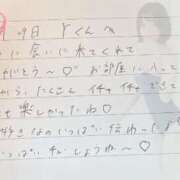 9日 Yくんへ
に会いに来てくれて
がとう〜♡ お部屋に入って
から、たくさん イチャ イチャ できて
も 楽しかったわ♡
好きなのいっぱい伝わったよ
っぱい チュ しようね〜♡